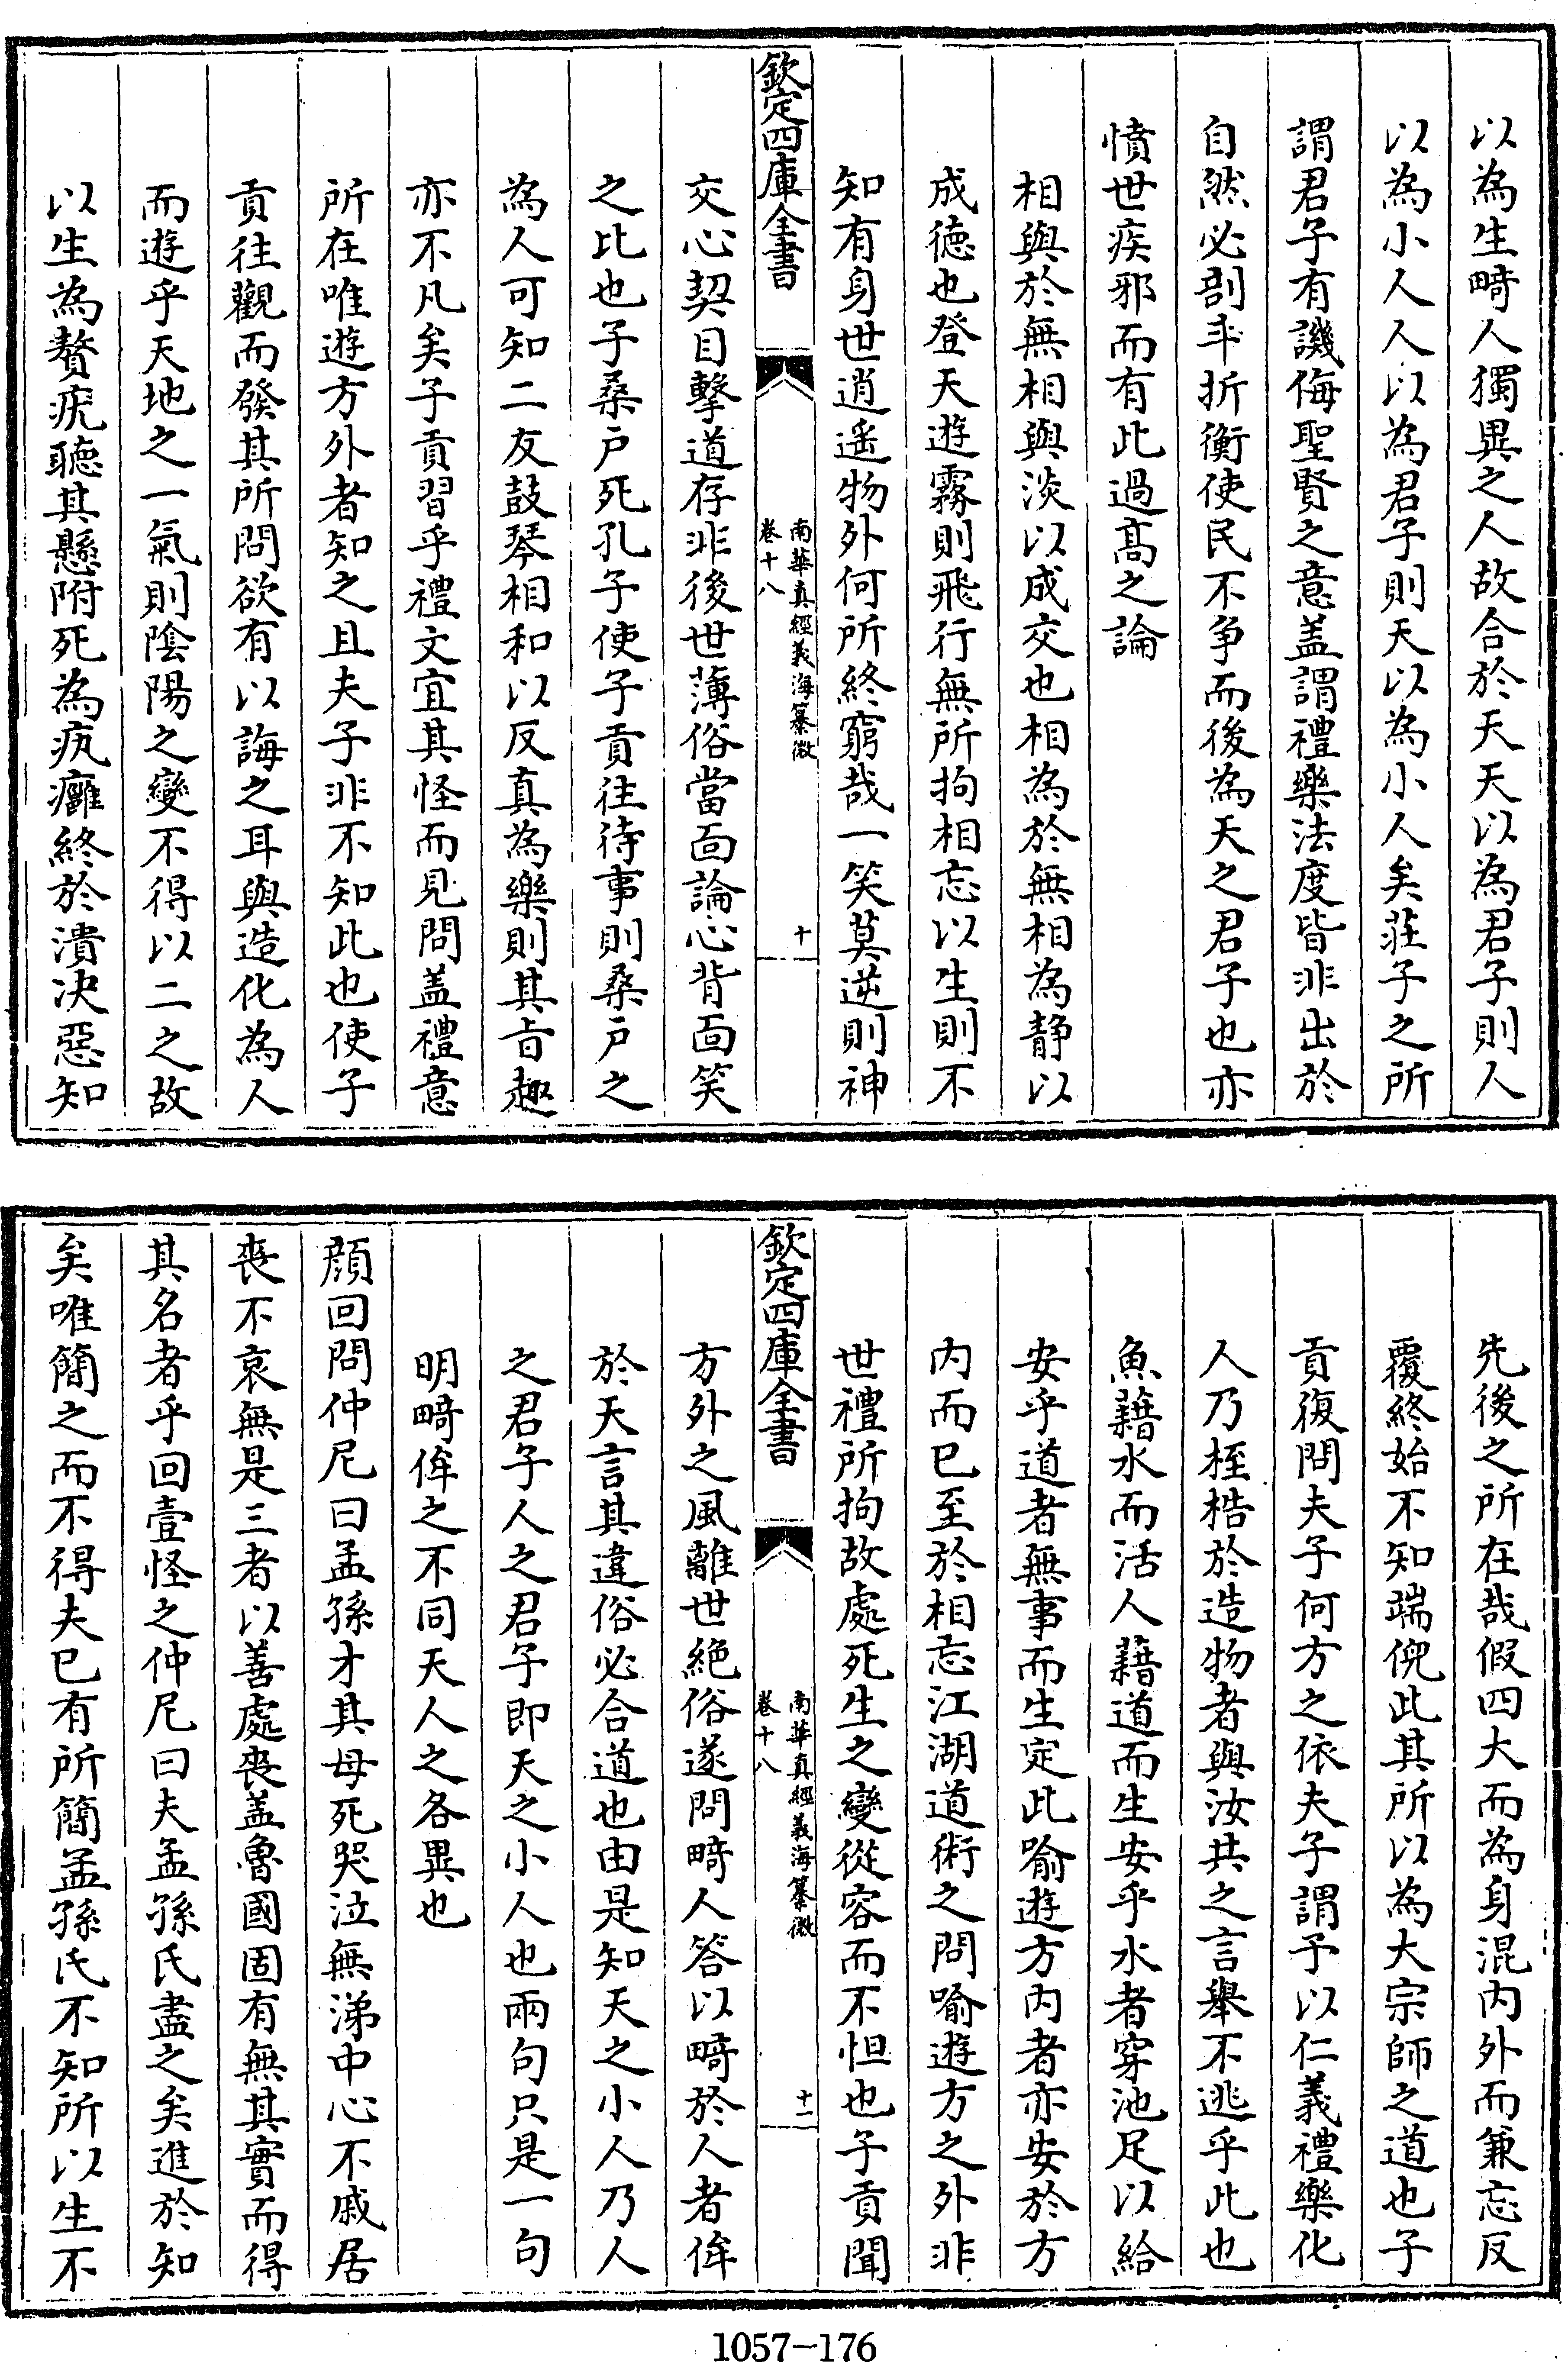 以為生畸人獨異之人故合於天天以為君子則人
以為小人人以為君子則天以為小人矣莊子之所
謂君子有譏侮聖賢之意盖謂禮樂法度皆非出於
自然必剖斗折衡使民不争而後為天之君子也亦
憤世疾邪而有此過髙之論
相與於無相與淡以成交也相為於無相為静以
成德也登天遊霧則飛行無所拘相忘以生則不
知有身世逍遥物外何所終窮哉一笑莫逆則神
欽定四庫全書
南華真經義海纂微
卷十八
十
交心契目擊道存非後世薄俗當面論心背面笑
之比也子桑户死孔子使子貢往待事則桑户之
為人可知二友鼓琴相和以反真為樂則其㫖趣
亦不凡矣子貢習乎禮文宜其怪而見問盖禮意
所在唯遊方外者知之且夫子非不知此也使子
貢往觀而發其所問欲有以誨之耳與造化為人
而遊乎天地之一氣則陰陽之變不得以二之故
以生為贅疣聽其懸附死為疻癰終於潰决惡知
先後之所在哉假四大而為身混内外而兼忘反
覆終始不知端倪此其所以為大宗師之道也子
貢復問夫子何方之依夫子謂予以仁義禮樂化
人乃桎梏於造物者與汝共之言舉不逃乎此也
魚藉水而活人藉道而生安乎水者穿池足以給
安乎道者無事而生定此喻遊方内者亦安於方
内而已至於相忘江湖道術之問喻遊方之外非
世禮所拘故處死生之變從容而不怛也子貢聞
欽定四庫全書
南華真經義海纂微
卷十八
十一
方外之風離世絶俗遂問畸人答以畸於人者侔
於天言其違俗必合道也由是知天之小人乃人
之君子人之君子即天之小人也兩句只是一句
明畸侔之不同天人之各異也
顔回問仲尼曰孟孫才其母死哭泣無涕中心不戚居
喪不哀無是三者以善處喪盖魯國固有無其實而得
其名者乎回壹怪之仲尼曰夫孟孫氏盡之矣進於知
矣唯簡之而不得夫已有所簡孟孫氏不知所以生不
1057-176